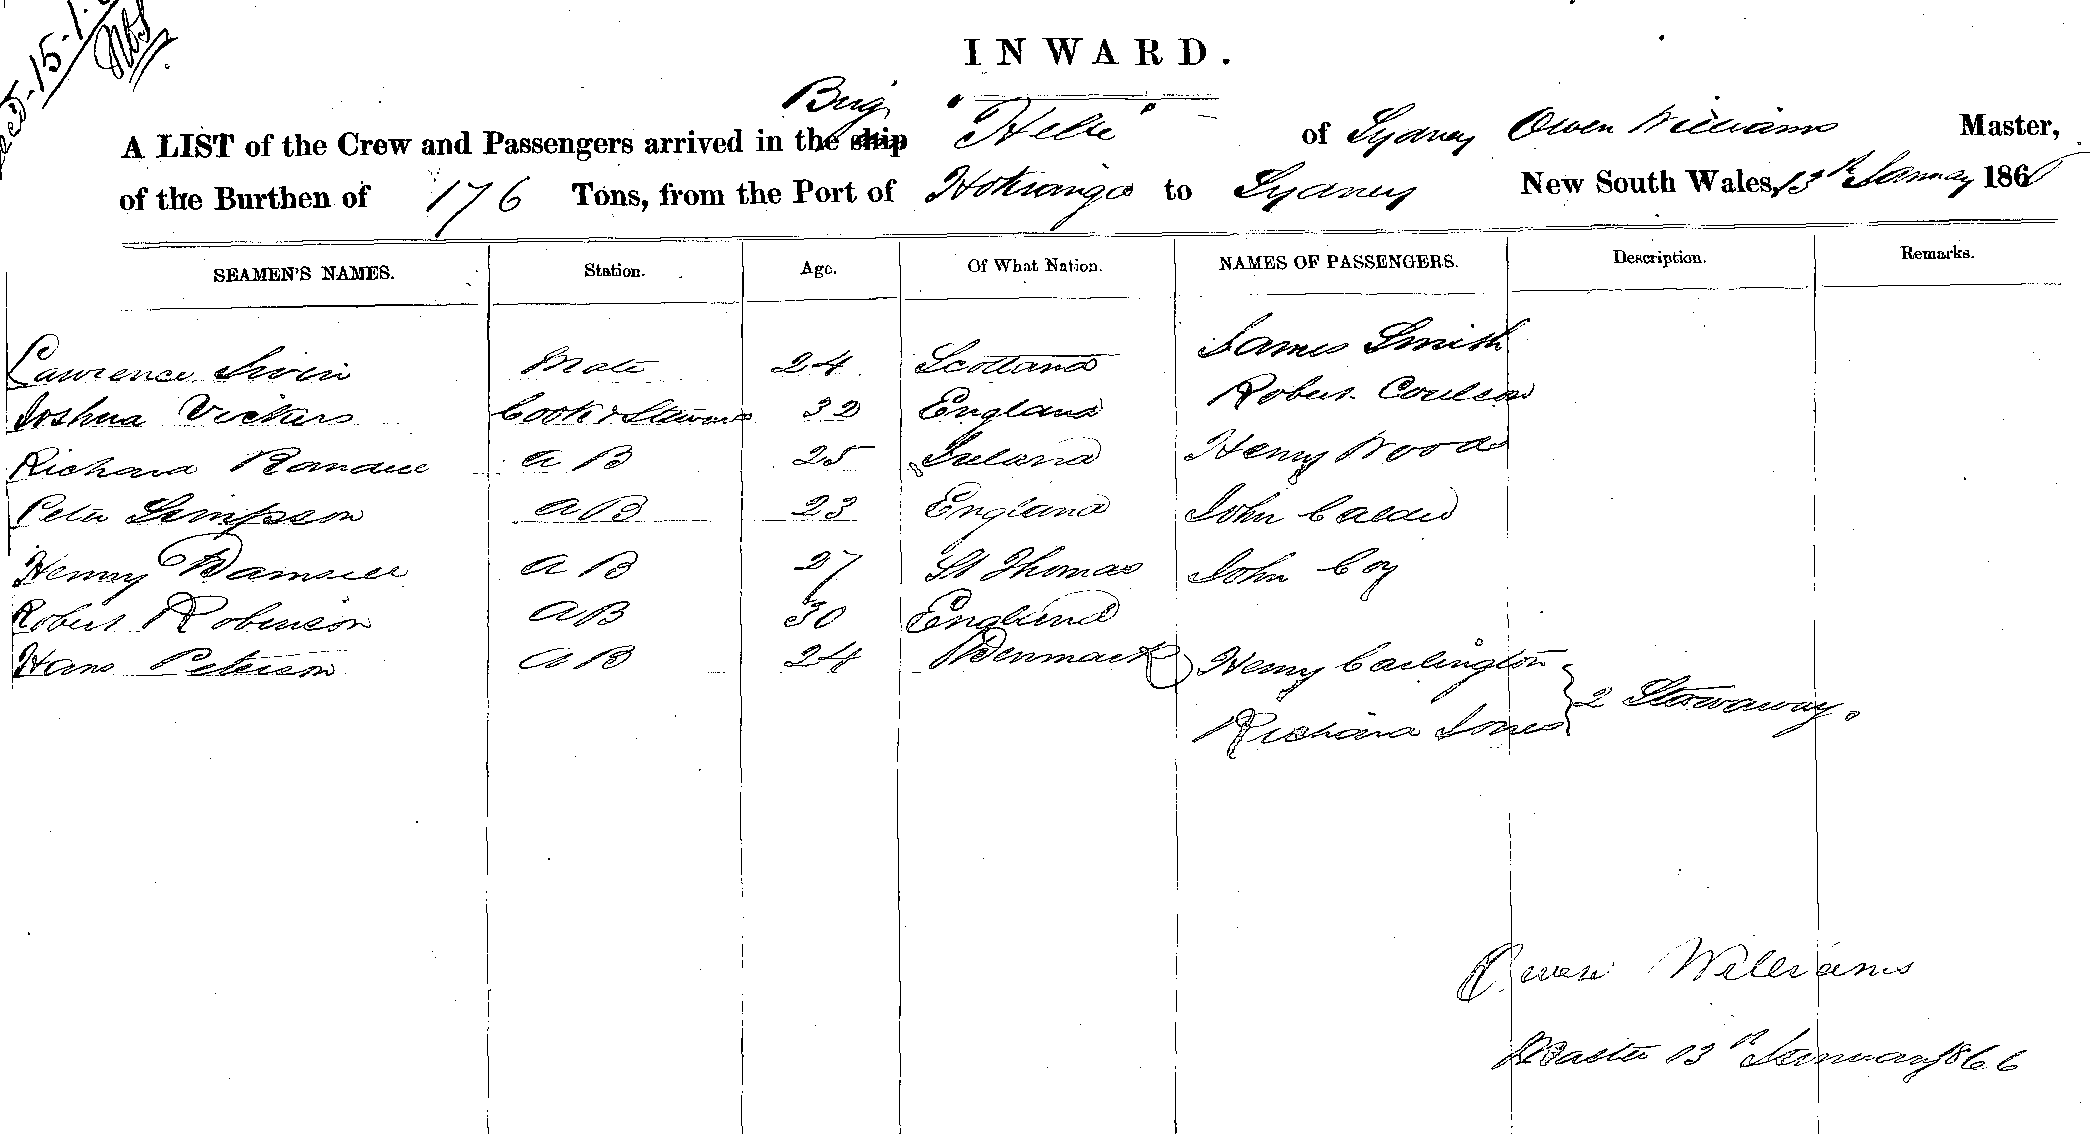 INWARD.
Brig
A LIST of the Crew and Passengers arrived in the ship "Hebe" of Sydney Owen Williams Master,
of the Burthen of 176 Tons, from the Port of Hokianga to Sydney New South Wales, 13th January 1866
SEAMEN'S NAMES. Station. Age. Of What Nation. NAMES OF PASSENGERS. Description. Remarks.
James Smith
Lawrence Mate 24 Scotland
Robert Coulson
Joshua Vickers Cook & Steward 32 England
Henry Wood
Richard A B 25 Ireland
Peter Simpson A B 23 England John Calder
Henry A B 27 St Thomas John Coy
Robert Robinson A B 30 England
Hans Peterson A B 24 Denmark Henry Carlington
2 Stowaway.
Richard Jones
Owen Williams
Master 13th January 1866